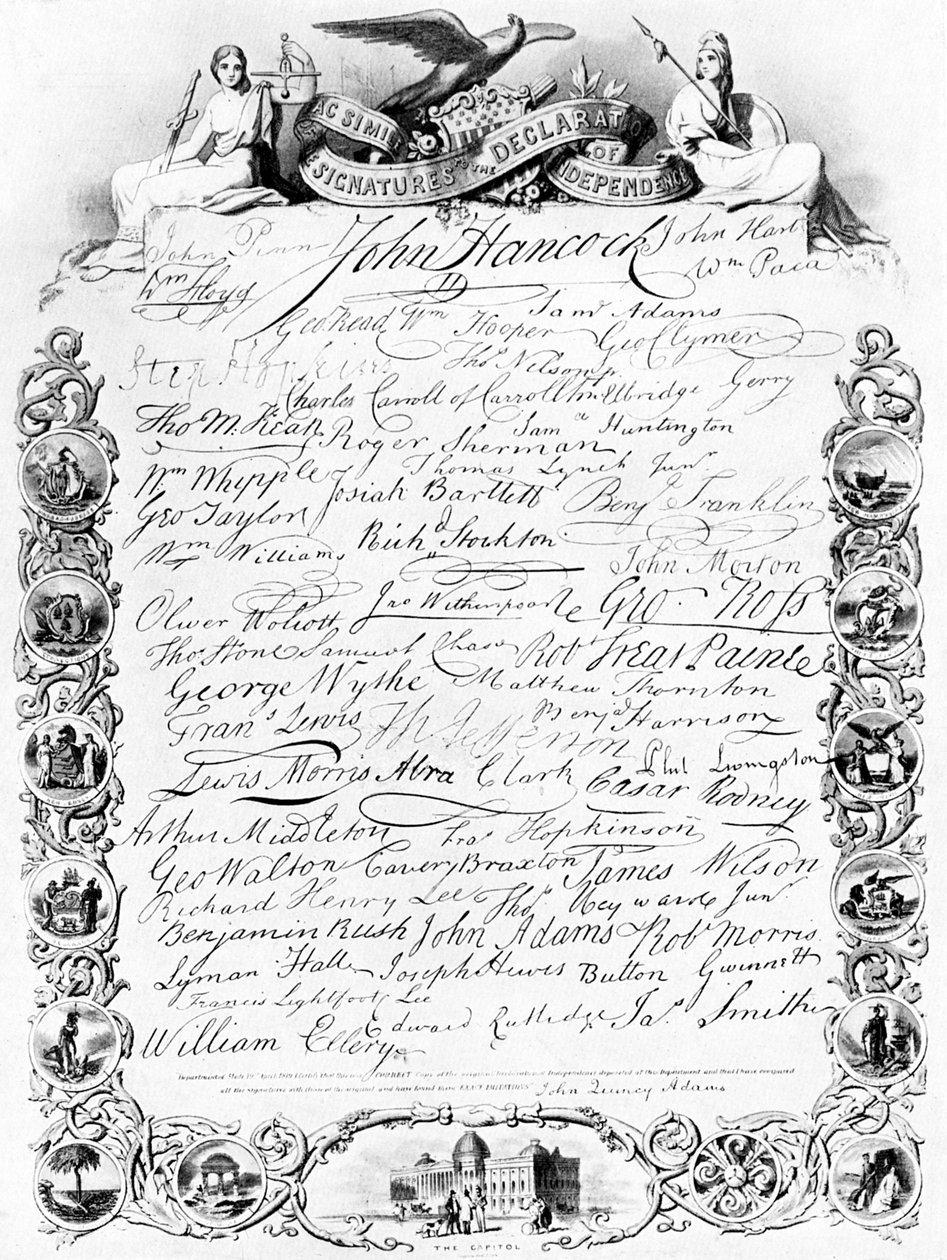 FAC SIMILE
OF THE SIGNATURES TO THE DECLARATION OF INDEPENDENCE
John Penn John Hancock John Hart
Wm Floyd Wm Paca
Geo Read Wm Hooper Saml Adams Geo Clymer
Step Hopkins Thos Nelson jr.
Charles Carroll of Carrollton Elbridge Gerry
Tho M:Kean Roger Sherman Saml Huntington
Wm Whipple Josiah Bartlett Thomas Lynch Junr.
Geo Taylor Benj Franklin
Wm Williams Richd Stockton John Morton
Oliver Wolcott Jno Witherspoon Geo. Ross
Thos Stone Samuel Chase Robt Treat Paine
George Wythe Matthew Thornton
Frans Lewis Th Jefferson Benj Harrison
Lewis Morris Abra Clark Phil Livingston
Cæsar Rodney
Arthur Middleton Fras Hopkinson
Geo Walton Carter Braxton James Wilson
Richard Henry Lee Thos Heyward Junr.
Benjamin Rush John Adams Robt Morris
Lyman Hall Joseph Hewes Button Gwinnett
Francis Lightfoot Lee
William Ellery Edward Rutledge Jas. Smith
Department of State 19th April 1819 I certify that this is a CORRECT Copy of the original Declaration of Independence deposited at this Department and that I have compared
all the signatures with those of the original and have found them EXACT IMITATIONS John Quincy Adams
THE CAPITOL